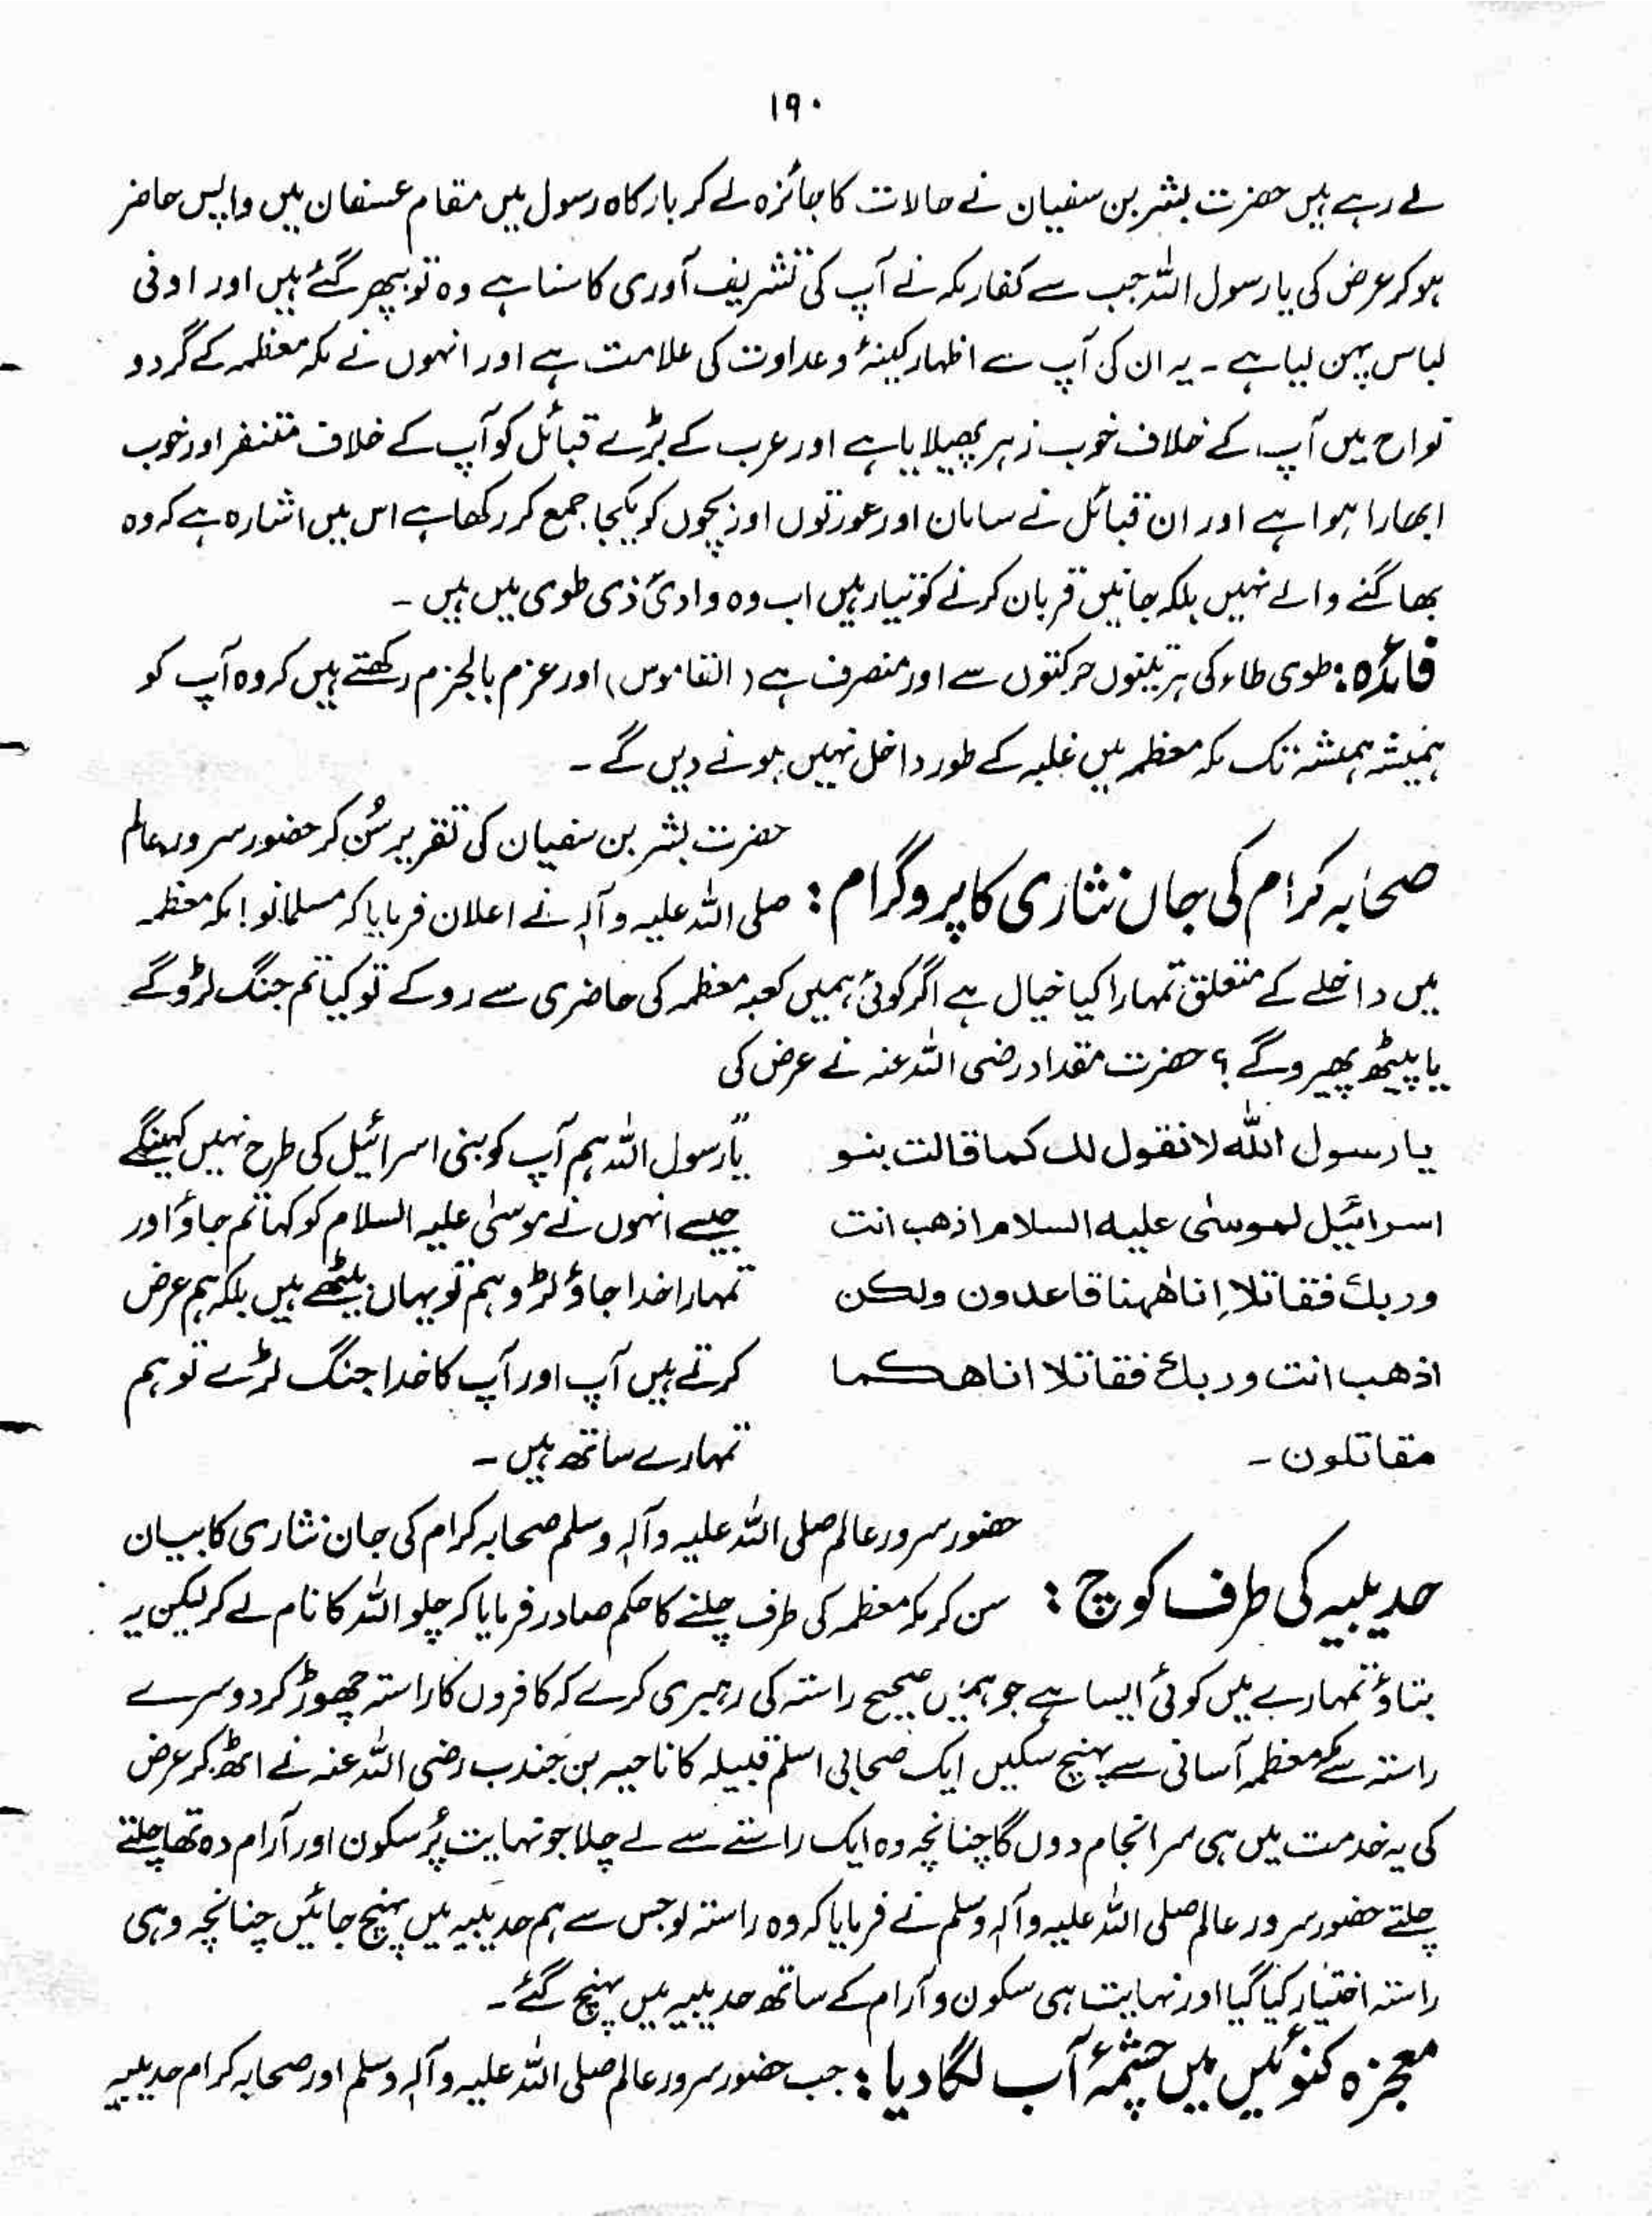 ۱۹۰
لے رہے ہیں حضرت بشر بن سفیان نے حالات کا جائزہ لے کر بارگاہ رسول میں مقام عسفان میں واپس حاضر
ہو کر عرض کی یا رسول اللہ جب سے کفار مکہ نے آپ کی تشریف آوری کا سنا ہے وہ تو بپھر گئے ہیں اور اونی
لباس پہن لیا ہے ۔ یہ ان کی آپ سے اظہار کینۂ و عداوت کی علامت ہے اور انہوں نے مکہ معظمہ کے گرد و
نواح میں آپ کے خلاف خوب زہر پھیلا یا ہے اور عرب کے بڑے قبائل کو آپ کے خلاف متنفر اور خوب
ابھارا ہوا ہے اور ان قبائل نے سامان اور عورتوں اور بچوں کو یکجا جمع کر رکھا ہے اس میں اشارہ ہے کہ وہ
بھاگنے والے نہیں بلکہ جانیں قربان کرنے کو تیار ہیں اب وہ وادیٔ ذی طوی میں ہیں ۔
فائدہ : طوی طاء کی ہر تینوں حرکتوں سے اور منصرف ہے (القاموس) اور عزم بالجزم رکھتے ہیں کہ وہ آپ کو
ہمیشہ ہمیشہ تک مکہ معظمہ میں غلبہ کے طور داخل نہیں ہونے دیں گے ۔
حضرت بشر بن سفیان کی تقریر سُن کر حضور سرور عالم
صحابہ کرام کی جاں نثاری کا پروگرام : صلی اللہ علیہ وآلہٖ نے اعلان فرمایا کہ مسلمانو! مکہ معظمہ
میں داخلے کے متعلق تمہارا کیا خیال ہے اگر کوئی ہمیں کعبہ معظمہ کی حاضری سے روکے تو کیا تم جنگ لڑو گے
یا پیٹھ پھیرو گے ؟ حضرت مقداد رضی اللہ عنہ نے عرض کی
یا رسول اللہ لا نقول لك كما قالت بنو
اسرائیل لموسیٰ علیہ السلام اذهب انت
وربك فقاتلا اِنا ھٰهنا قاعدون ولكن
اذهب انت وربك فقاتلا انا هكما
مقاتلون ۔
یا رسول اللہ ہم آپ کو بنی اسرائیل کی طرح نہیں کہینگے
جیسے انہوں نے موسیٰ علیہ السلام کو کہا تم جاؤ اور
تمہارا خدا جاؤ لڑو ہم تو یہاں بیٹھے ہیں بلکہ ہم عرض
کرتے ہیں آپ اور آپ کا خدا جنگ لڑے تو ہم
تمہارے ساتھ ہیں ۔
حضور سرور عالم صلی اللہ علیہ وآلہٖ وسلم صحابہ کرام کی جان نثاری کا بیان
حدیبیہ کی طرف کوچ : سن کر مکہ معظمہ کی طرف چلنے کا حکم صادر فرمایا کہ چلو اللہ کا نام لے کر لیکن یہ
بتاؤ تمہارے میں کوئی ایسا ہے جو ہمیں صحیح راستہ کی رہبری کرے کہ کافروں کا راستہ چھوڑ کر دوسرے
راستہ سے مکہ معظمہ آسانی سے پہنچ سکیں ایک صحابی اسلم قبیلہ کا ناجیہ بن جندب رضی اللہ عنہ نے اٹھ کر عرض
کی یہ خدمت میں ہی سرانجام دوں گا چنانچہ وہ ایک راستے سے لے چلا جو نہایت پُرسکون اور آرام دہ تھا چلتے
چلتے حضور سرور عالم صلی اللہ علیہ وآلہٖ وسلم نے فرمایا کہ وہ راستہ لو جس سے ہم حدیبیہ میں پہنچ جائیں چنانچہ وہی
راستہ اختیار کیا گیا اور نہایت ہی سکون و آرام کے ساتھ حدیبیہ میں پہنچ گئے ۔
معجزہ کنوئیں میں چشمۂ آب لگا دیا : جب حضور سرور عالم صلی اللہ علیہ وآلہٖ وسلم اور صحابہ کرام حدیبیہ